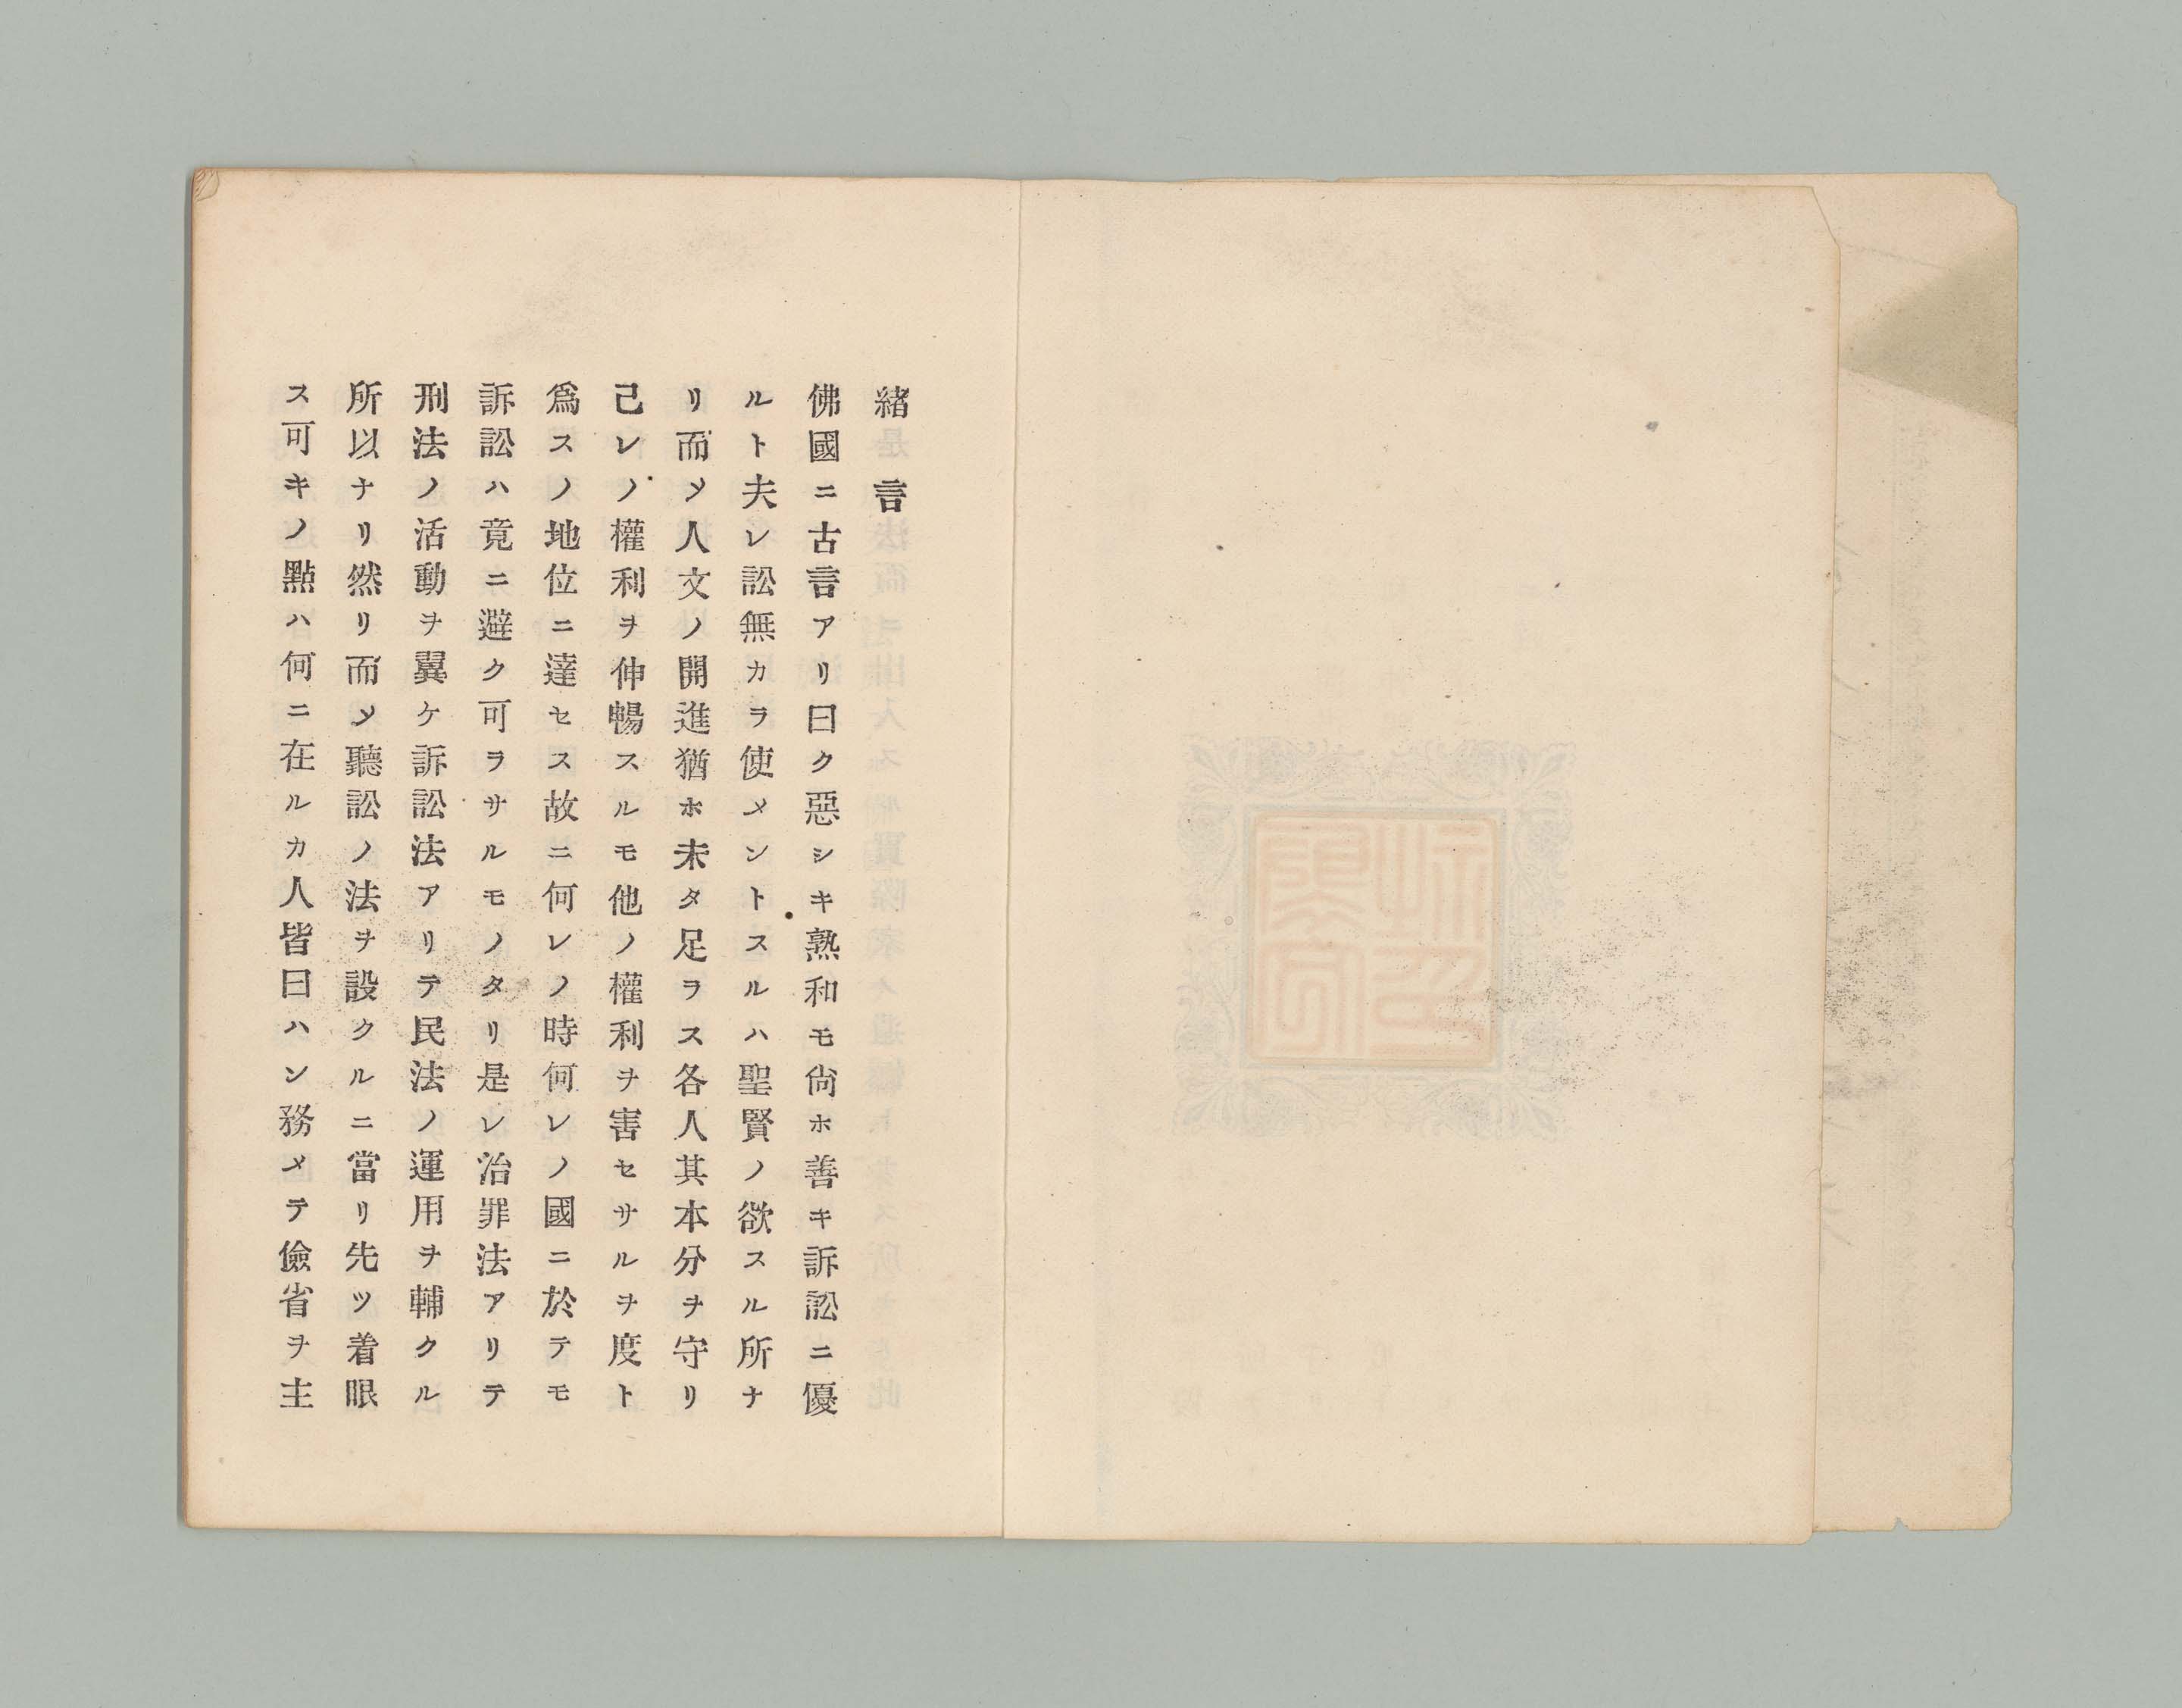 緖言
佛國ニ古言アリ曰ク惡シキ熟和モ尙ホ善キ訴訟ニ優
ルト夫レ訟無カラ使メントスルハ聖賢ノ欲スル所ナ
リ而〆人文ノ開進猶ホ未タ足ラス各人其本分ヲ守リ
己レノ權利ヲ伸暢スルモ他ノ權利ヲ害セサルヲ度ト
爲スノ地位ニ達セス故ニ何レノ時何レノ國ニ於テモ
訴訟ハ竟ニ避ク可ラサルモノタリ是レ治罪法アリテ
刑法ノ活動ヲ翼ケ訴訟法アリテ民法ノ運用ヲ輔クル
所以ナリ然リ而〆聽訟ノ法ヲ設クルニ當リ先ツ着眼
ス可キノ點ハ何ニ在ルカ人皆曰ハン務メテ儉省ヲ主